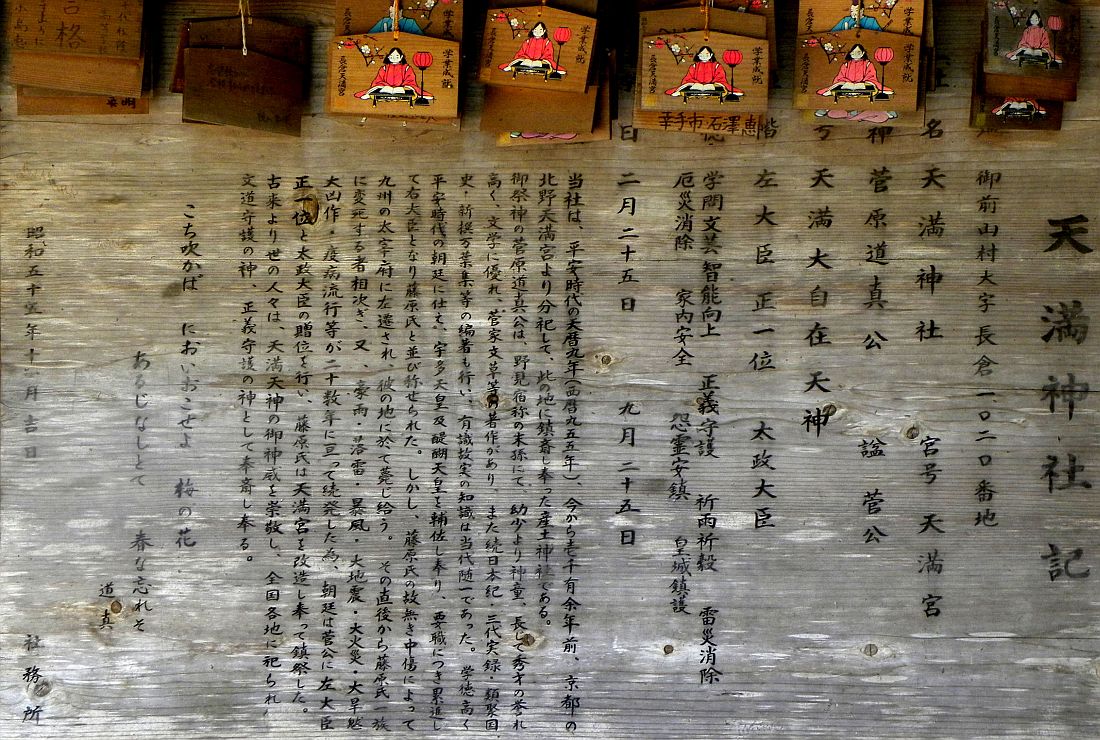 天満神社記
御前山村大字長倉一〇二〇番地
名 天満神社 宮号 天満宮
神 菅原道真公 諡 菅公
号 天満大自在天神
階 左大臣 正一位 太政大臣
学問文芸智能向上 正義守護 祈雨祈穀 雷災消除
厄災消除 家内安全 怨霊安鎮 皇城鎮護
日 二月二十五日 九月二十五日
当社は、平安時代の天暦九年(西暦九五五年)、今から壱千有余年前、京都の
北野天満宮より分祀して、此の地に鎮斎し奉った産土神社である。
御祭神の菅原道真公は、野見宿祢の末孫にて、幼少より神童、長じて秀才の誉れ
高く、文学に優れ、菅家文草等の著作があり、また続日本紀・三代実録・類聚国
史・新撰万葉集等の編著も行い、有識故実の知識は当代随一であった。 学徳高く
平安時代の朝廷に仕え、宇多天皇及醍醐天皇を輔佐し奉り、要職につき累進し
て右大臣となり藤原氏と並び称せられた。しかし、藤原氏の故無き中傷によって
九州の太宰府に左遷され、彼の地に於て薨じ給う。 その直後から藤原氏一族
に変死する者相次ぎ、又、豪雨・落雷・暴風・大地震・大火災・大旱魃
大凶作・疫病流行等が二十数年に亘って続発した為、朝廷は菅公に左大臣
正一位と太政大臣の贈位を行い、藤原氏は天満宮を改造し奉って鎮祭した。
古来より世の人々は、天満天神の御神威を崇敬し、全国各地に祀られ、
文道守護の神、正義守護の神として奉斎し奉る。
こち吹かば においおこせよ 梅の花
あるじなしとて 春な忘れそ
道真
昭和五十五年十 月吉日
社務所
合格
学業成就
長倉天満宮
学業成就
長倉天満宮
学業成就
長倉天満宮
学業成就
長倉天満宮
幸手市 石澤恵